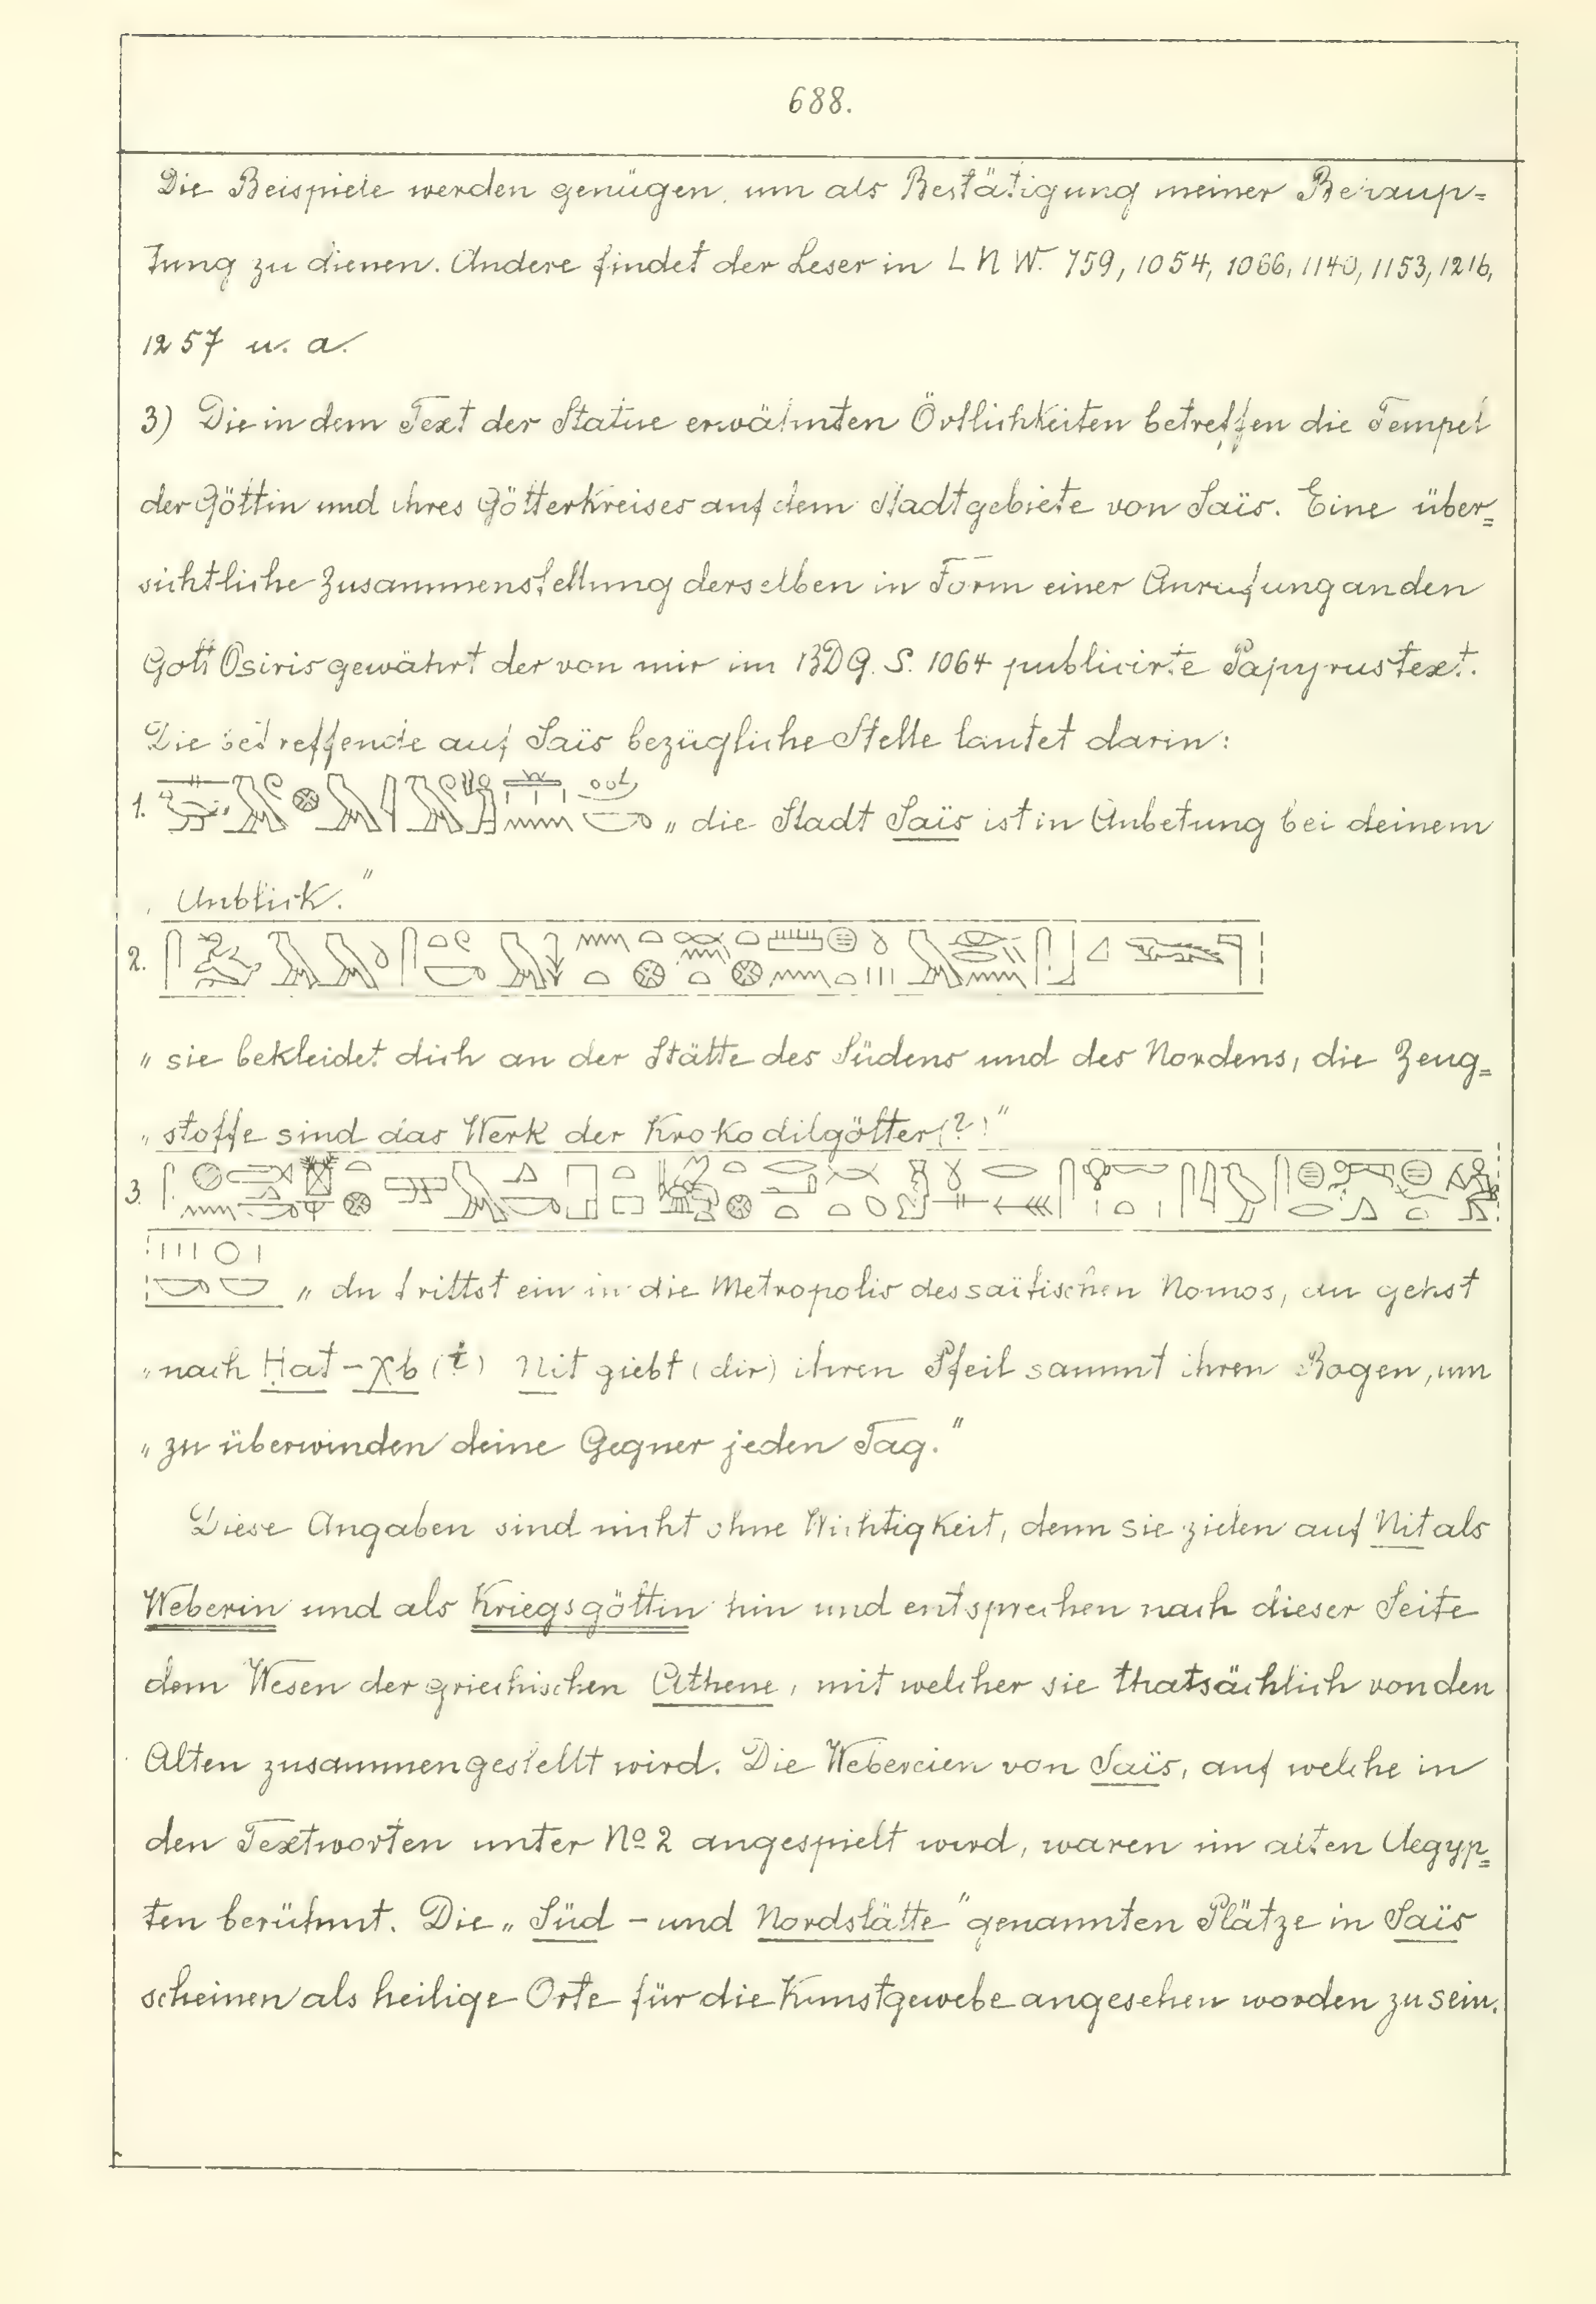 688.
Die Beispiele werden genügen, um als Bestätigung meiner Behaup-
tung zu dienen. Andere findet der Leser in LNW. 759, 1054, 1066, 1140, 1153, 1216,
1257 u. a.
3) Die in dem Text der Statue erwähnten Örtlichkeiten betreffen die Tempel
der Göttin und ihres Götterkreises auf dem Stadtgebiete von Saïs. Eine über=
sichtliche Zusammenstellung derselben in Form einer Anrufung an den
Gott Osiris gewährt der von mir im BDG. S. 1064 publicirte Papyrustext.
Die betreffende auf Saïs bezügliche Stelle lautet darin:
1. „die Stadt Saïs ist in Anbetung bei deinem
Anblick."
2.
„sie bekleidet dich an der Stätte des Südens und des Nordens, die Zeug=
„stoffe sind das Werk der Krokodilgötter(?)"
3.
„du trittst ein in die Metropolis des saïtischen Nomos, du gehst
„nach Hat-χb(t) Nit giebt (dir) ihren Pfeil sammt ihren Bogen, um
„zu überwinden deine Gegner jeden Tag."
Diese Angaben sind nicht ohne Wichtigkeit, denn sie zielen auf Nit als
Weberin und als Kriegsgöttin hin und entsprechen nach dieser Seite
dem Wesen der griechischen Athene, mit welcher sie thatsächlich von den
Alten zusammengestellt wird. Die Webereien von Saïs, auf welche in
den Textworten unter No 2 angespielt wird, waren im alten Aegyp=
ten berühmt. Die „Süd - und Nordstätte" genannten Plätze in Saïs
scheinen als heilige Orte für die Kunstgewebe angesehen worden zu sein.